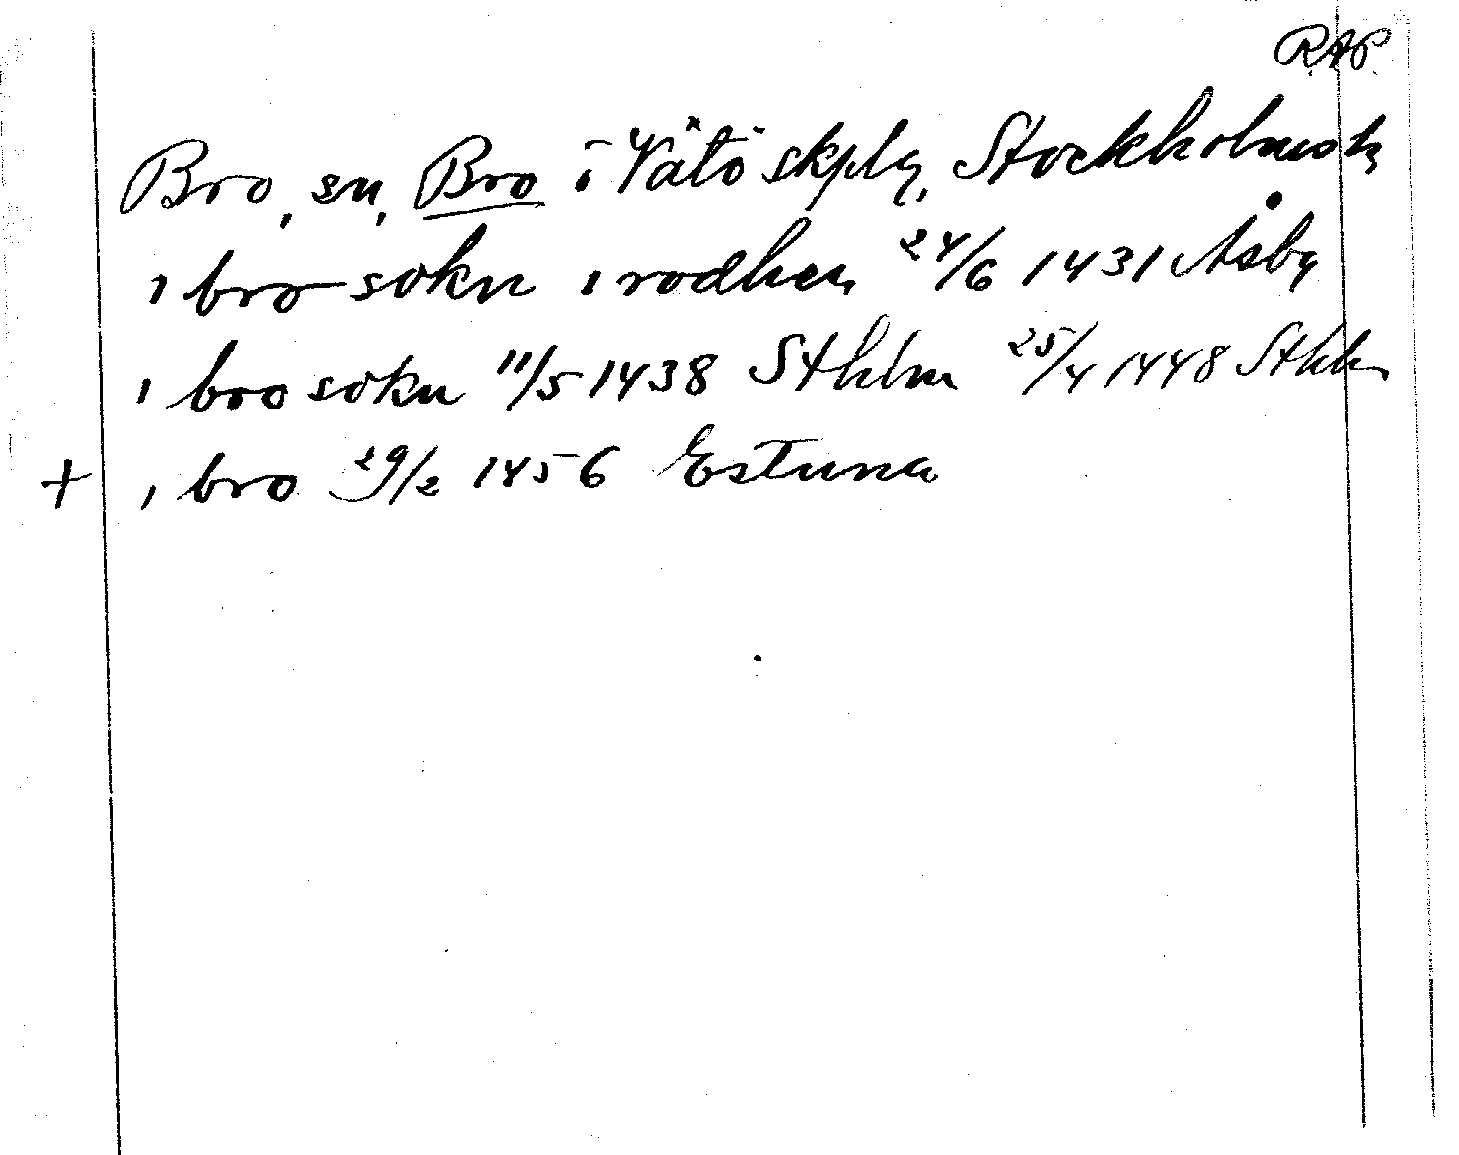 RAP.
Bro, sn, Bro i Vätö skplg, Stockholms l.
i bro sokn i rodhen 24/6 1431 Åsby
i bro sokn 11/5 1438 Sthlm 25/4 1448 Sthlm
+ i bro 29/2 1456 Estuna